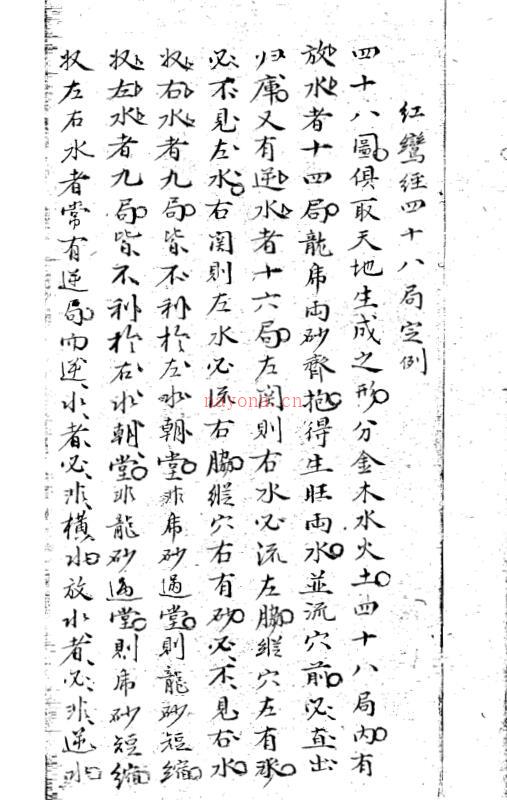 红鸞经四十八局定例
四十八圖俱取天地生成之形分金木水火土四十八局内有
放水者十四局龍虎两砂齊抱得生旺两水並流穴前必直出
归庫又有逆水者十六局左関則右水必流左脇縱穴左有水
必不見左水右関則左水必流右脇縱穴右有砂必不見右水
収右水者九局皆不利扵左水朝堂非虎砂過堂則龍砂短縮
収左水者九局皆不利扵右水朝堂非龍砂過堂則虎砂短縮
収左右水者常有逆局而逆水者必非横水放水者必非逆水
nayona.cn